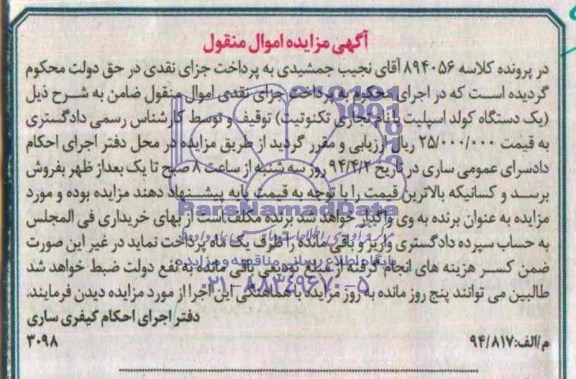 آگهی مزایده اموال منقول
در پرونده کلاسه ۸۹۴۰۵۶ آقای نجیب جمشیدی به پرداخت جزای نقدی در حق دولت محکوم
گردیده است که در اجرای محکوم به پرداخت جزای نقدی اموال منقول ضامن به شرح ذیل
(یک دستگاه کولد اسپلیت با نام تجاری تکنوتیت) توقیف و توسط کارشناس رسمی دادگستری
به قیمت ۲۵/۰۰۰/۰۰۰ ریال ارزیابی و مقرر گردید از طریق مزایده در محل دفتر اجرای احکام
دادسرای عمومی ساری در تاریخ ۹۴/۴/۲ روز سه شنبه از ساعت ۸ صبح تا یک بعداز ظهر بفروش
برسد و کسانیکه بالاترین قیمت را با توجه به قیمت پایه پیشنهاد دهند مزایده بوده و مورد
مزایده به عنوان برنده به وی واگذار خواهد شد برنده مکلف است از بهای خریداری فی المجلس
ParsNamadData
به حساب سپرده دادگستری واریز و باقی مانده را ظرف یک ماه پرداخت نماید در غیر این صورت
پایگاه اطلاع رسانی مناقصه و مزایده
ضمن کسر هزینه های انجام گرفته از مبلغ تودیعی باقی مانده به نفع دولت ضبط خواهد شد
۰۲۱-۸۸۳۴۹۶۷۰-۵
طالبین می توانند پنج روز مانده به روز مزایده با هماهنگی این اجرا از مورد مزایده دیدن فرمایند.
دفتر اجرای احکام کیفری ساری
م/الف:۹۴/۸۱۷ ۳۰۹۸